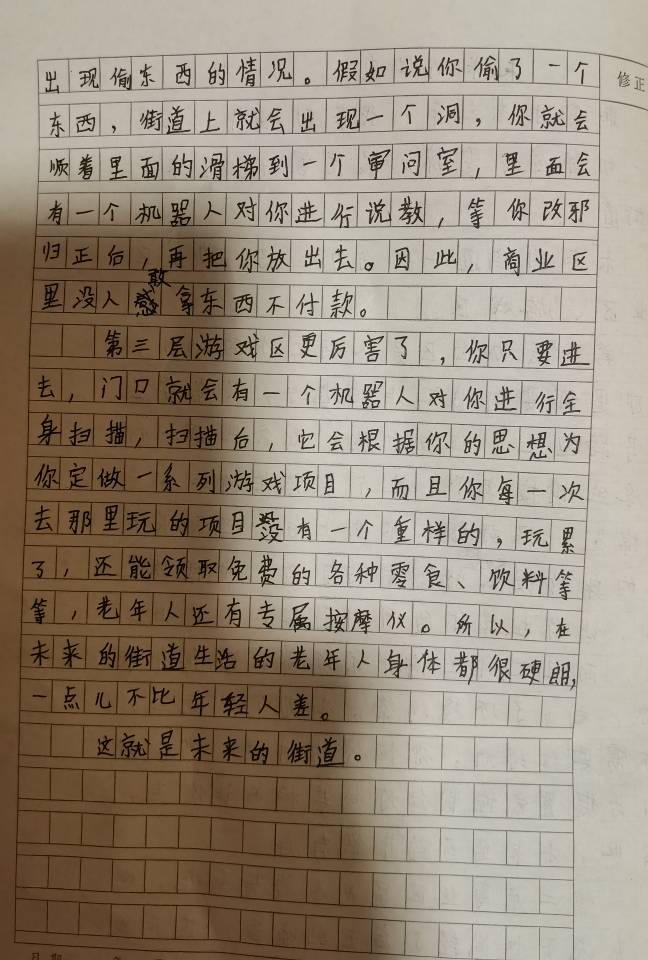 出现偷东西的情况。假如说你偷了一个
修正
东西，街道上就会出现一个洞，你就会
顺着里面的滑梯到一个审问室，里面会
有一个机器人对你进行说教，等你改邪
归正后，再把你放出去。因此，商业区
里没人敢拿东西不付款。
第三层游戏区更厉害了，你只要进
去，门口就会有一个机器人对你进行全
身扫描，扫描后，它会根据你的思想为
你定做一系列游戏项目，而且你每一次
去那里玩的项目没有一个重样的，玩累
了，还能领取免费的各种零食、饮料等
等，老年人还有专属按摩仪。所以，在
未来的街道生活的老年人身体都很硬朗，
一点儿不比年轻人差。
这就是未来的街道。